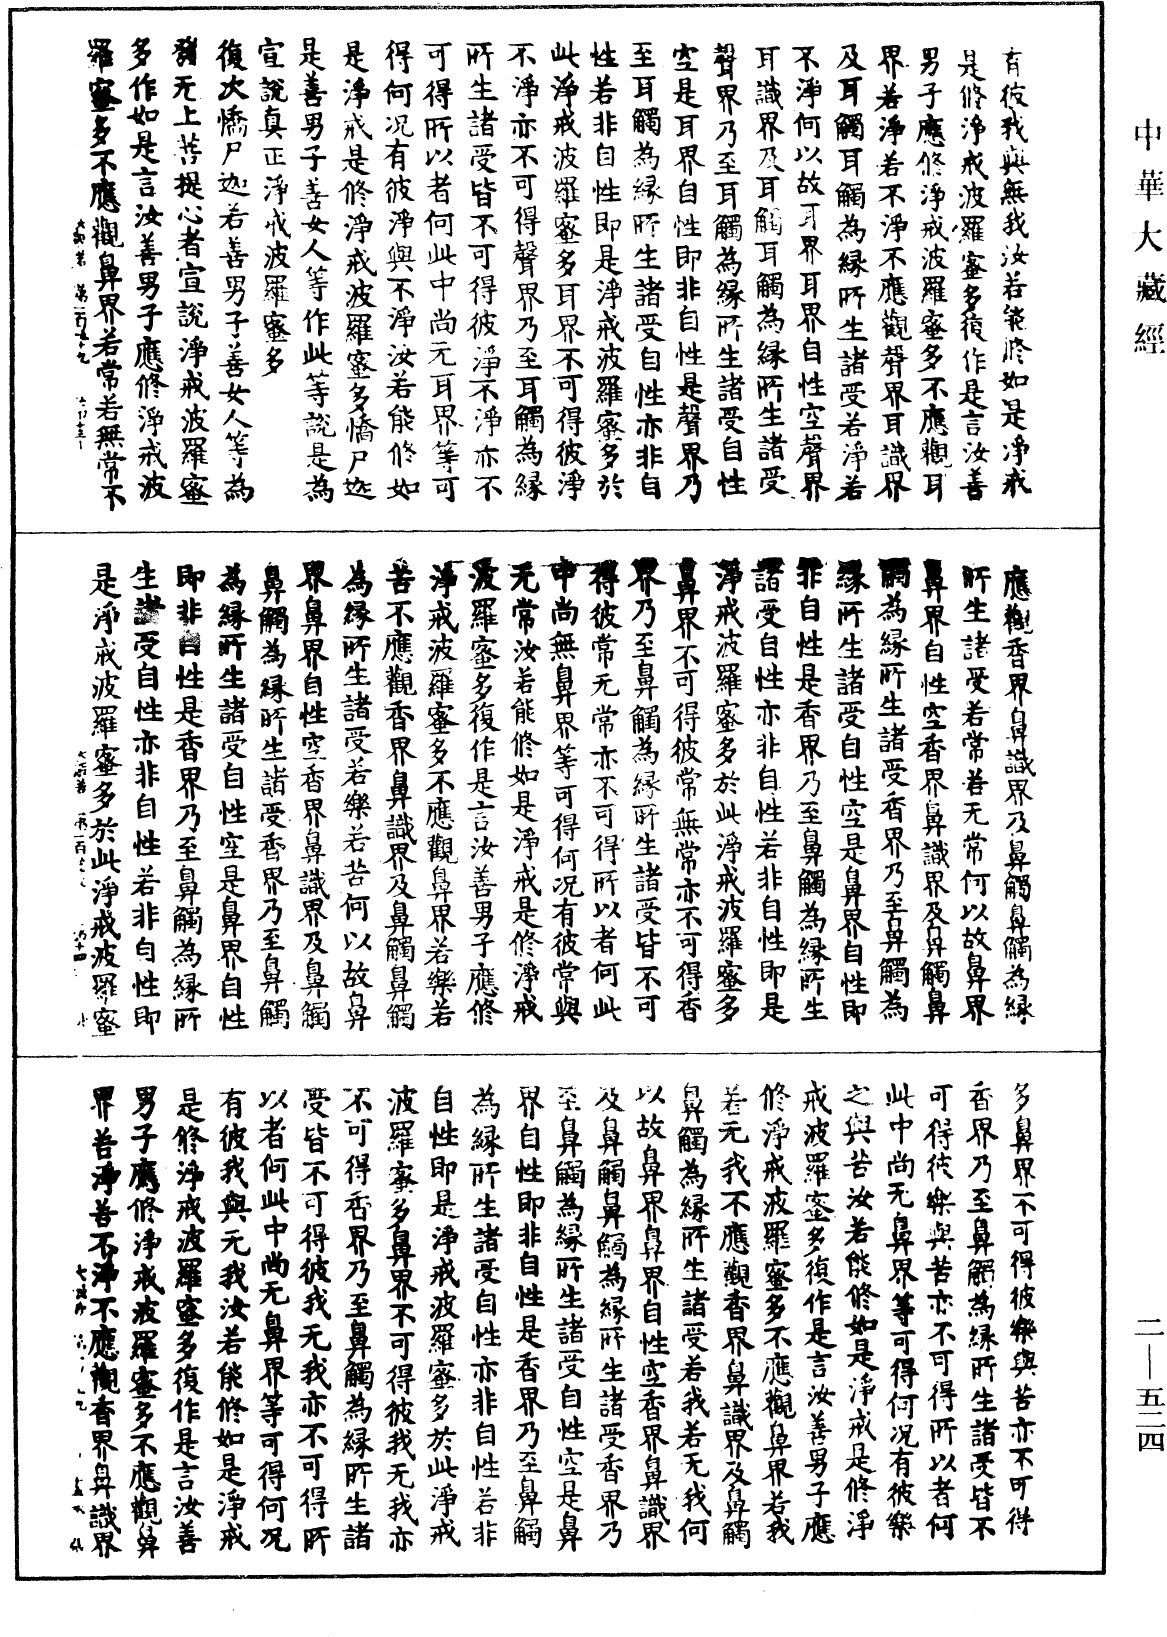 中華大藏經
有彼我與無我汝若能修如是淨戒
是修淨戒波羅蜜多復作是言汝善
男子應修淨戒波羅蜜多不應觀耳
界若淨若不淨不應觀聲界耳識界
及耳觸耳觸為緣所生諸受若淨若
不淨何以故耳界耳界自性空聲界
耳識界及耳觸耳觸為緣所生諸受
聲界乃至耳觸為緣所生諸受自性
空是耳界自性即非自性是聲界乃
至耳觸為緣所生諸受自性亦非自
性若非自性即是淨戒波羅蜜多於
此淨戒波羅蜜多耳界不可得彼淨
不淨亦不可得聲界乃至耳觸為緣
所生諸受皆不可得彼淨不淨亦不
可得所以者何此中尚无耳界等可
得何况有彼淨與不淨汝若能修如
是淨戒是修淨戒波羅蜜多憍尸迦
是善男子善女人等作此等說是為
宣說真正淨戒波羅蜜多
復次憍尸迦若善男子善女人等為
發无上菩提心者宣說淨戒波羅蜜
多作如是言汝善男子應修淨戒波
羅蜜多不應觀鼻界若常若無常不
應觀香界鼻識界及鼻觸鼻觸為緣
所生諸受若常若无常何以故鼻界
鼻界自性空香界鼻識界及鼻觸鼻
觸為緣所生諸受香界乃至鼻觸為
緣所生諸受自性空是鼻界自性即
非自性是香界乃至鼻觸為緣所生
諸受自性亦非自性若非自性即是
淨戒波羅蜜多於此淨戒波羅蜜多
鼻界不可得彼常無常亦不可得香
界乃至鼻觸為緣所生諸受皆不可
得彼常无常亦不可得所以者何此
中尚無鼻界等可得何况有彼常與
无常汝若能修如是淨戒是修淨戒
波羅蜜多復作是言汝善男子應修
淨戒波羅蜜多不應觀鼻界若樂若
苦不應觀香界鼻識界及鼻觸鼻觸
為緣所生諸受若樂若苦何以故鼻
界鼻界自性空香界鼻識界及鼻觸
鼻觸為緣所生諸受香界乃至鼻觸
為緣所生諸受自性空是鼻界自性
即非自性是香界乃至鼻觸為緣所
生諸受自性亦非自性若非自性即
是淨戒波羅蜜多於此淨戒波羅蜜
多鼻界不可得彼樂與苦亦不可得
香界乃至鼻觸為緣所生諸受皆不
可得彼樂與苦亦不可得所以者何
此中尚无鼻界等可得何况有彼樂
之與苦汝若能修如是淨戒是修淨
戒波羅蜜多復作是言汝善男子應
修淨戒波羅蜜多不應觀鼻界若我
若无我不應觀香界鼻識界及鼻觸
鼻觸為緣所生諸受若我若无我何
以故鼻界鼻界自性空香界鼻識界
及鼻觸鼻觸為緣所生諸受香界乃
至鼻觸為緣所生諸受自性空是鼻
界自性即非自性是香界乃至鼻觸
為緣所生諸受自性亦非自性若非
自性即是淨戒波羅蜜多於此淨戒
波羅蜜多鼻界不可得彼我无我亦
不可得香界乃至鼻觸為緣所生諸
受皆不可得彼我无我亦不可得所
以者何此中尚无鼻界等可得何况
有彼我與无我汝若能修如是淨戒
是修淨戒波羅蜜多復作是言汝善
男子應修淨戒波羅蜜多不應觀鼻
界若淨若不淨不應觀香界鼻識界
二—五二四